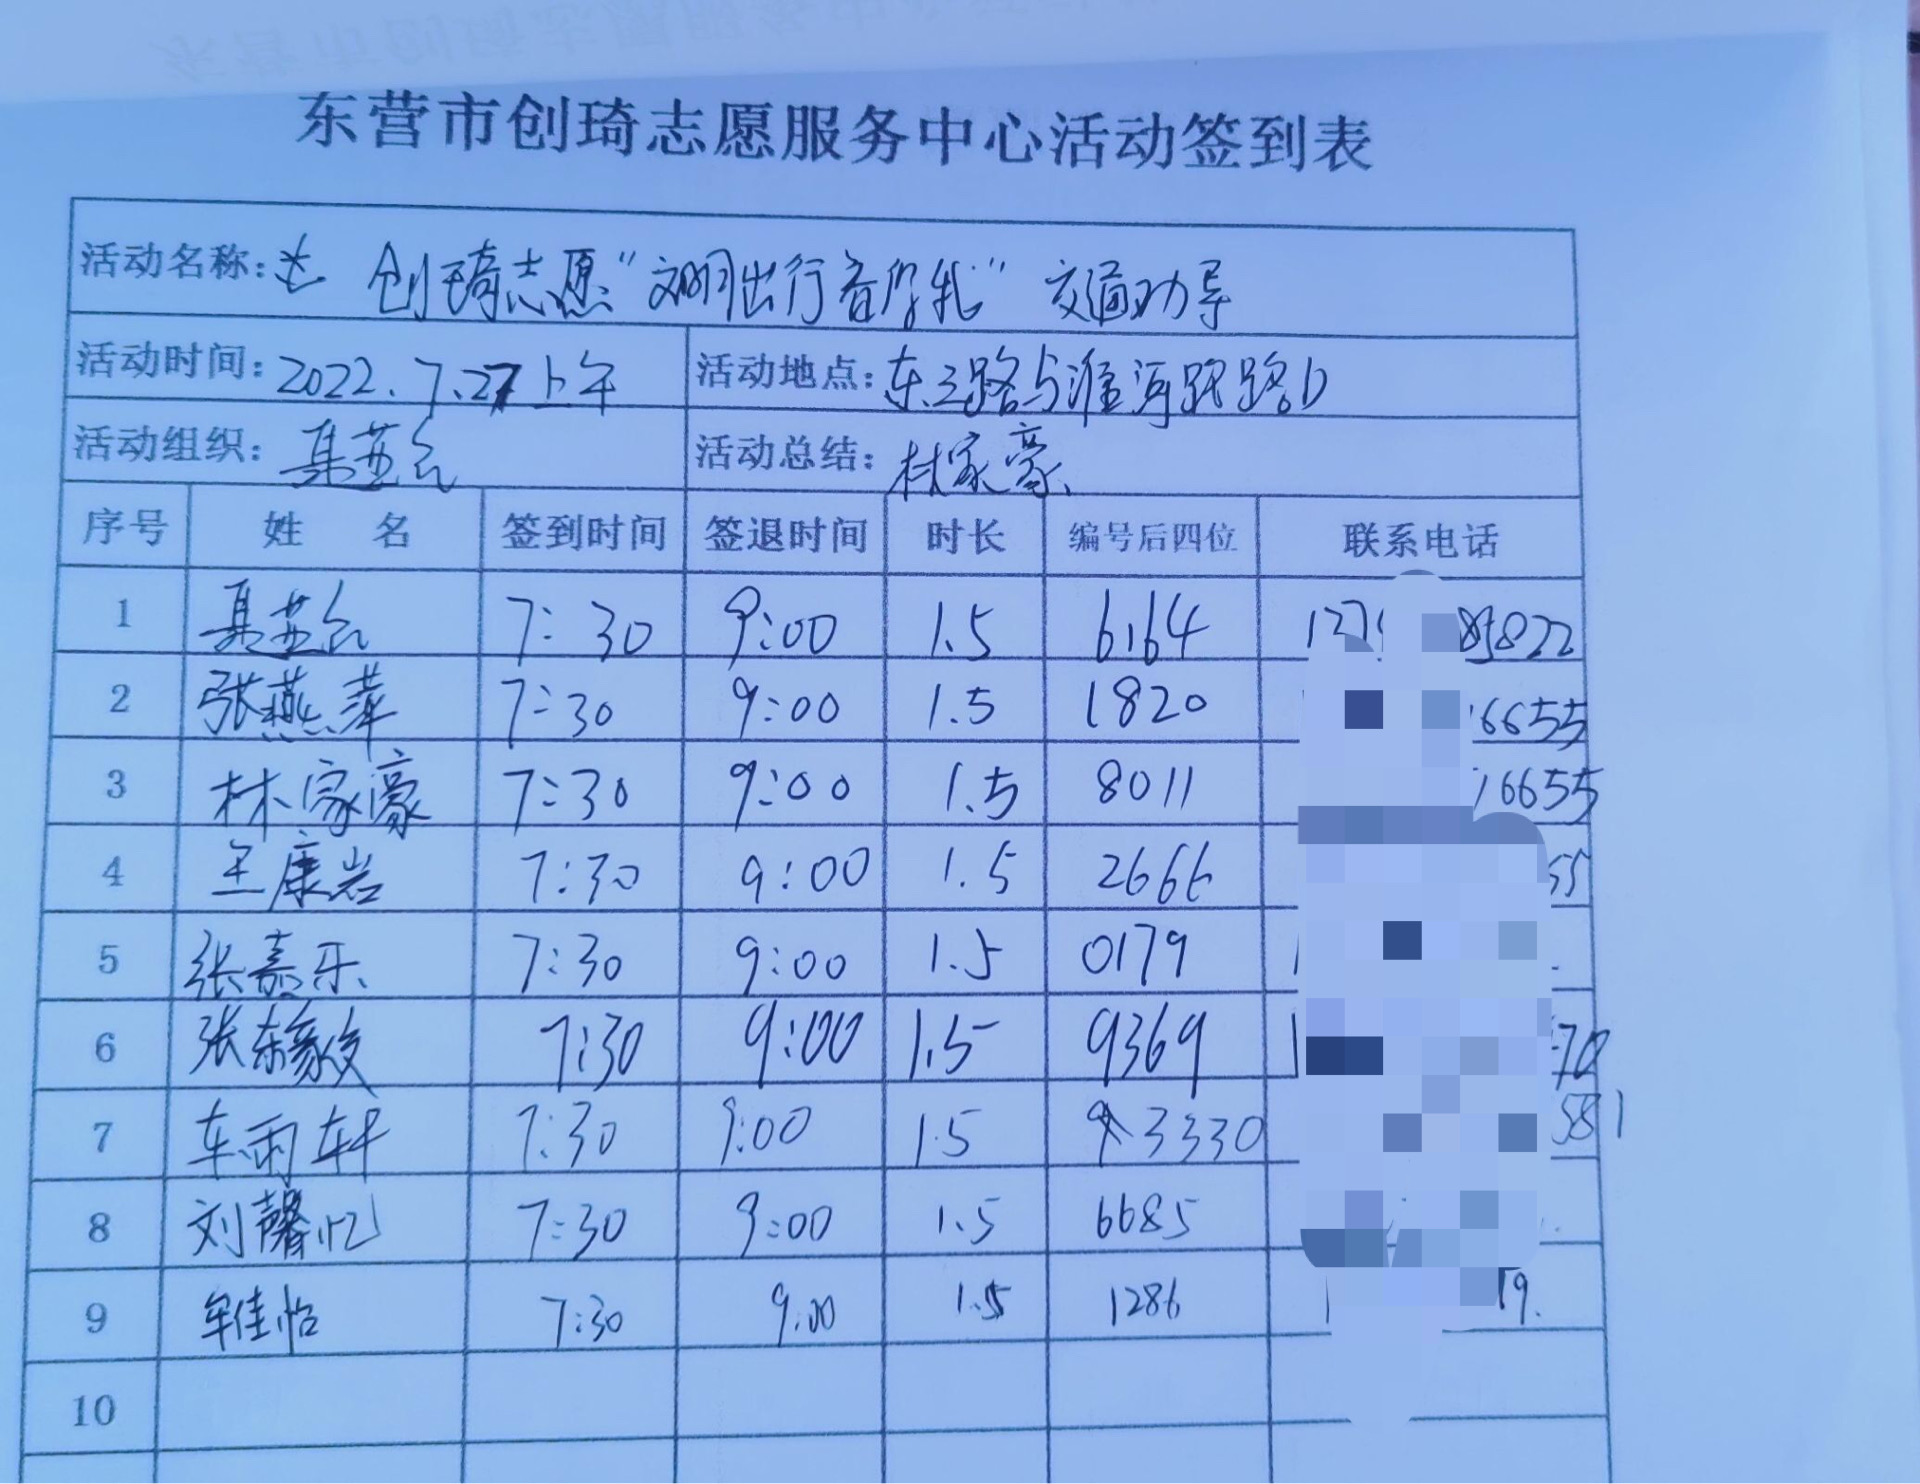 东营市创琦志愿服务中心活动签到表
活动名称: 创琦志愿"文明出行 " 交通劝导
活动时间: 2022.7.27上午 活动地点: 东三路与淮河路路口
活动组织: 活动总结: 林家豪
序号 姓 名 签到时间 签退时间 时长 编号后四位 联系电话
1 7:30 9:00 1.5 6164
2 张燕萍 7:30 9:00 1.5 1820 6655
3 林家豪 7:30 9:00 1.5 8011 6655
4 王康岩 7:30 9:00 1.5 2666
5 张嘉乐 7:30 9:00 1.5 0179
6 张东 7:30 9:00 1.5 9369 70
7 车雨轩 7:30 9:00 1.5 3330 581
8 刘馨忆 7:30 9:00 1.5 6685
9 牟佳怡 7:30 9:00 1.5 1286 19.
10